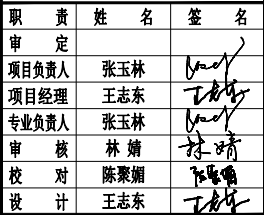 职 责 姓 名 签 名
审 定
项目负责人 张玉林
项目经理 王志东 王志东
专业负责人 张玉林
审 核 林婧 林婧
校 对 陈聚媚 陈聚媚
设 计 王志东 王志东